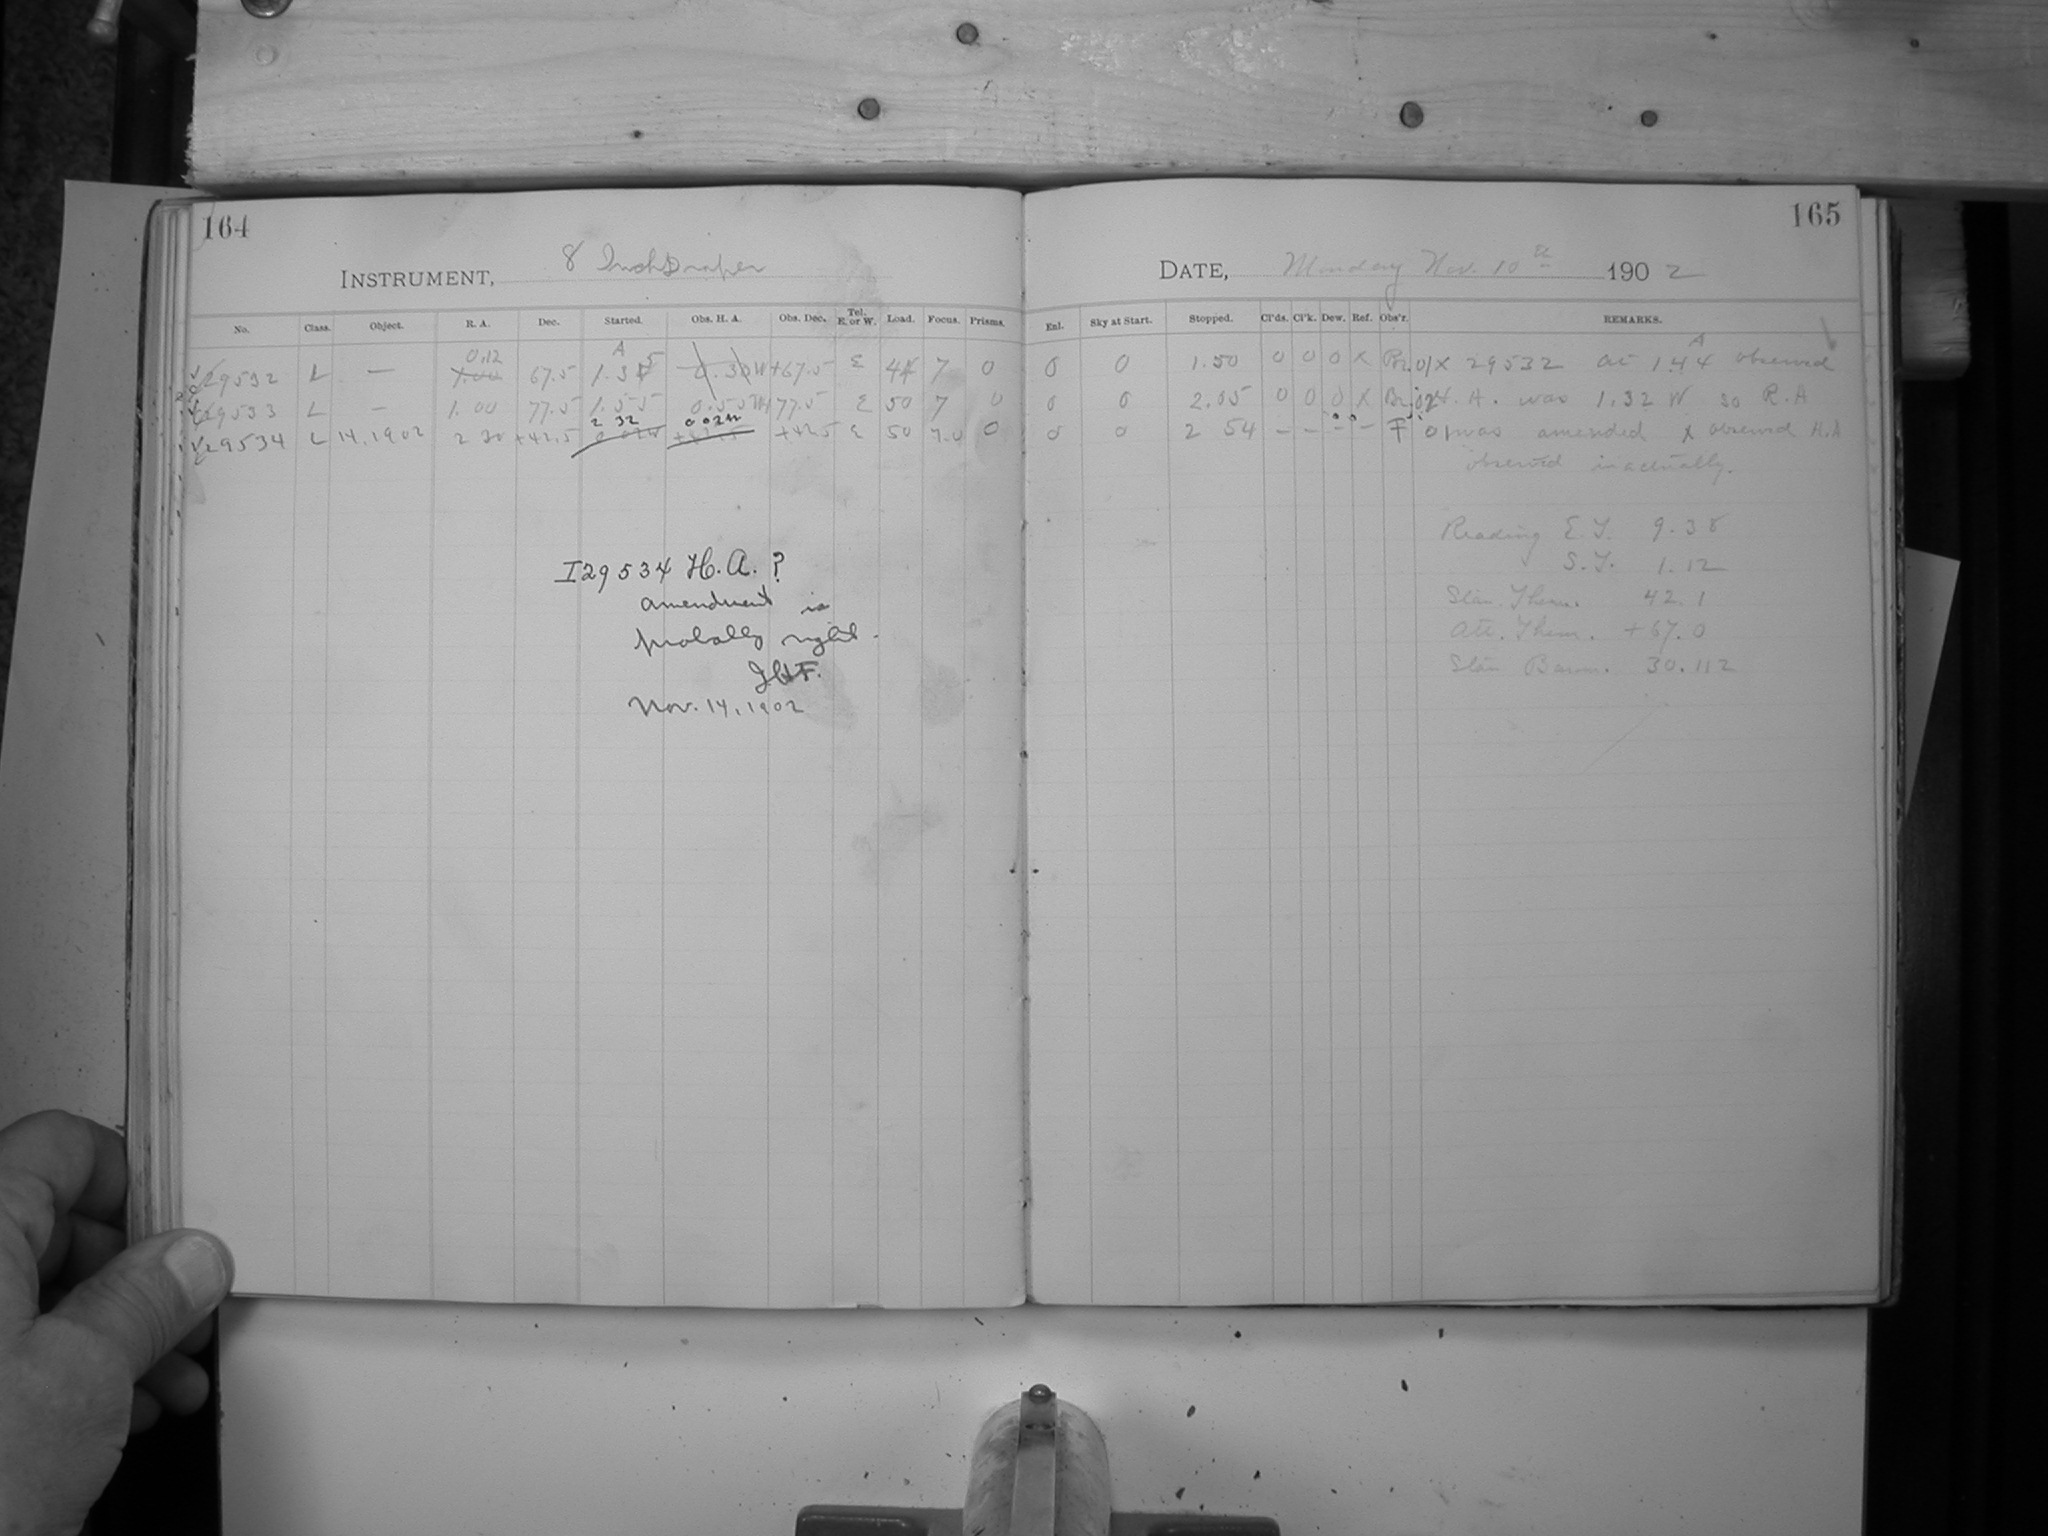 164
165
INSTRUMENT, 8 Inch Draper
DATE, Monday Nov. 10th 1902
No. Class. Object. R. A. Dec. Started. Obs. H. A. Obs. Dec. Tel. E. or W. Load. Focus. Prisms.
Enl. Sky at Start. Stopped. Cl'ds. Cl'k. Dew. Ref. Obs'r. REMARKS.
0.12 A 5
29532 L — 1.00 67.5 1.3 0.30W +67.5 E 4 7 0 0 0 1.50 0 0 0 X Br. 29532 at 1.44 A observed
29533 L — 1.00 77.5 1.55 0.55W 77.5 E 50 7 0 0 0 2.05 0 0 0 X Br. H. A. was 1.32 W so R.A
2 32 0 02W
29534 L 14,1902 2 30 +42.5 +42.5 E 50 7.0 0 0 0 2 54 – – – – F was amended x observed H.A
observed
Reading E.T. 9.38
S.T. 1.12
Stan. Therm. 42.1
Att. Therm. +67.0
Stan Barom. 30.112
I29534 H.A.?
amendment is
probably right.
Nov. 14, 1902